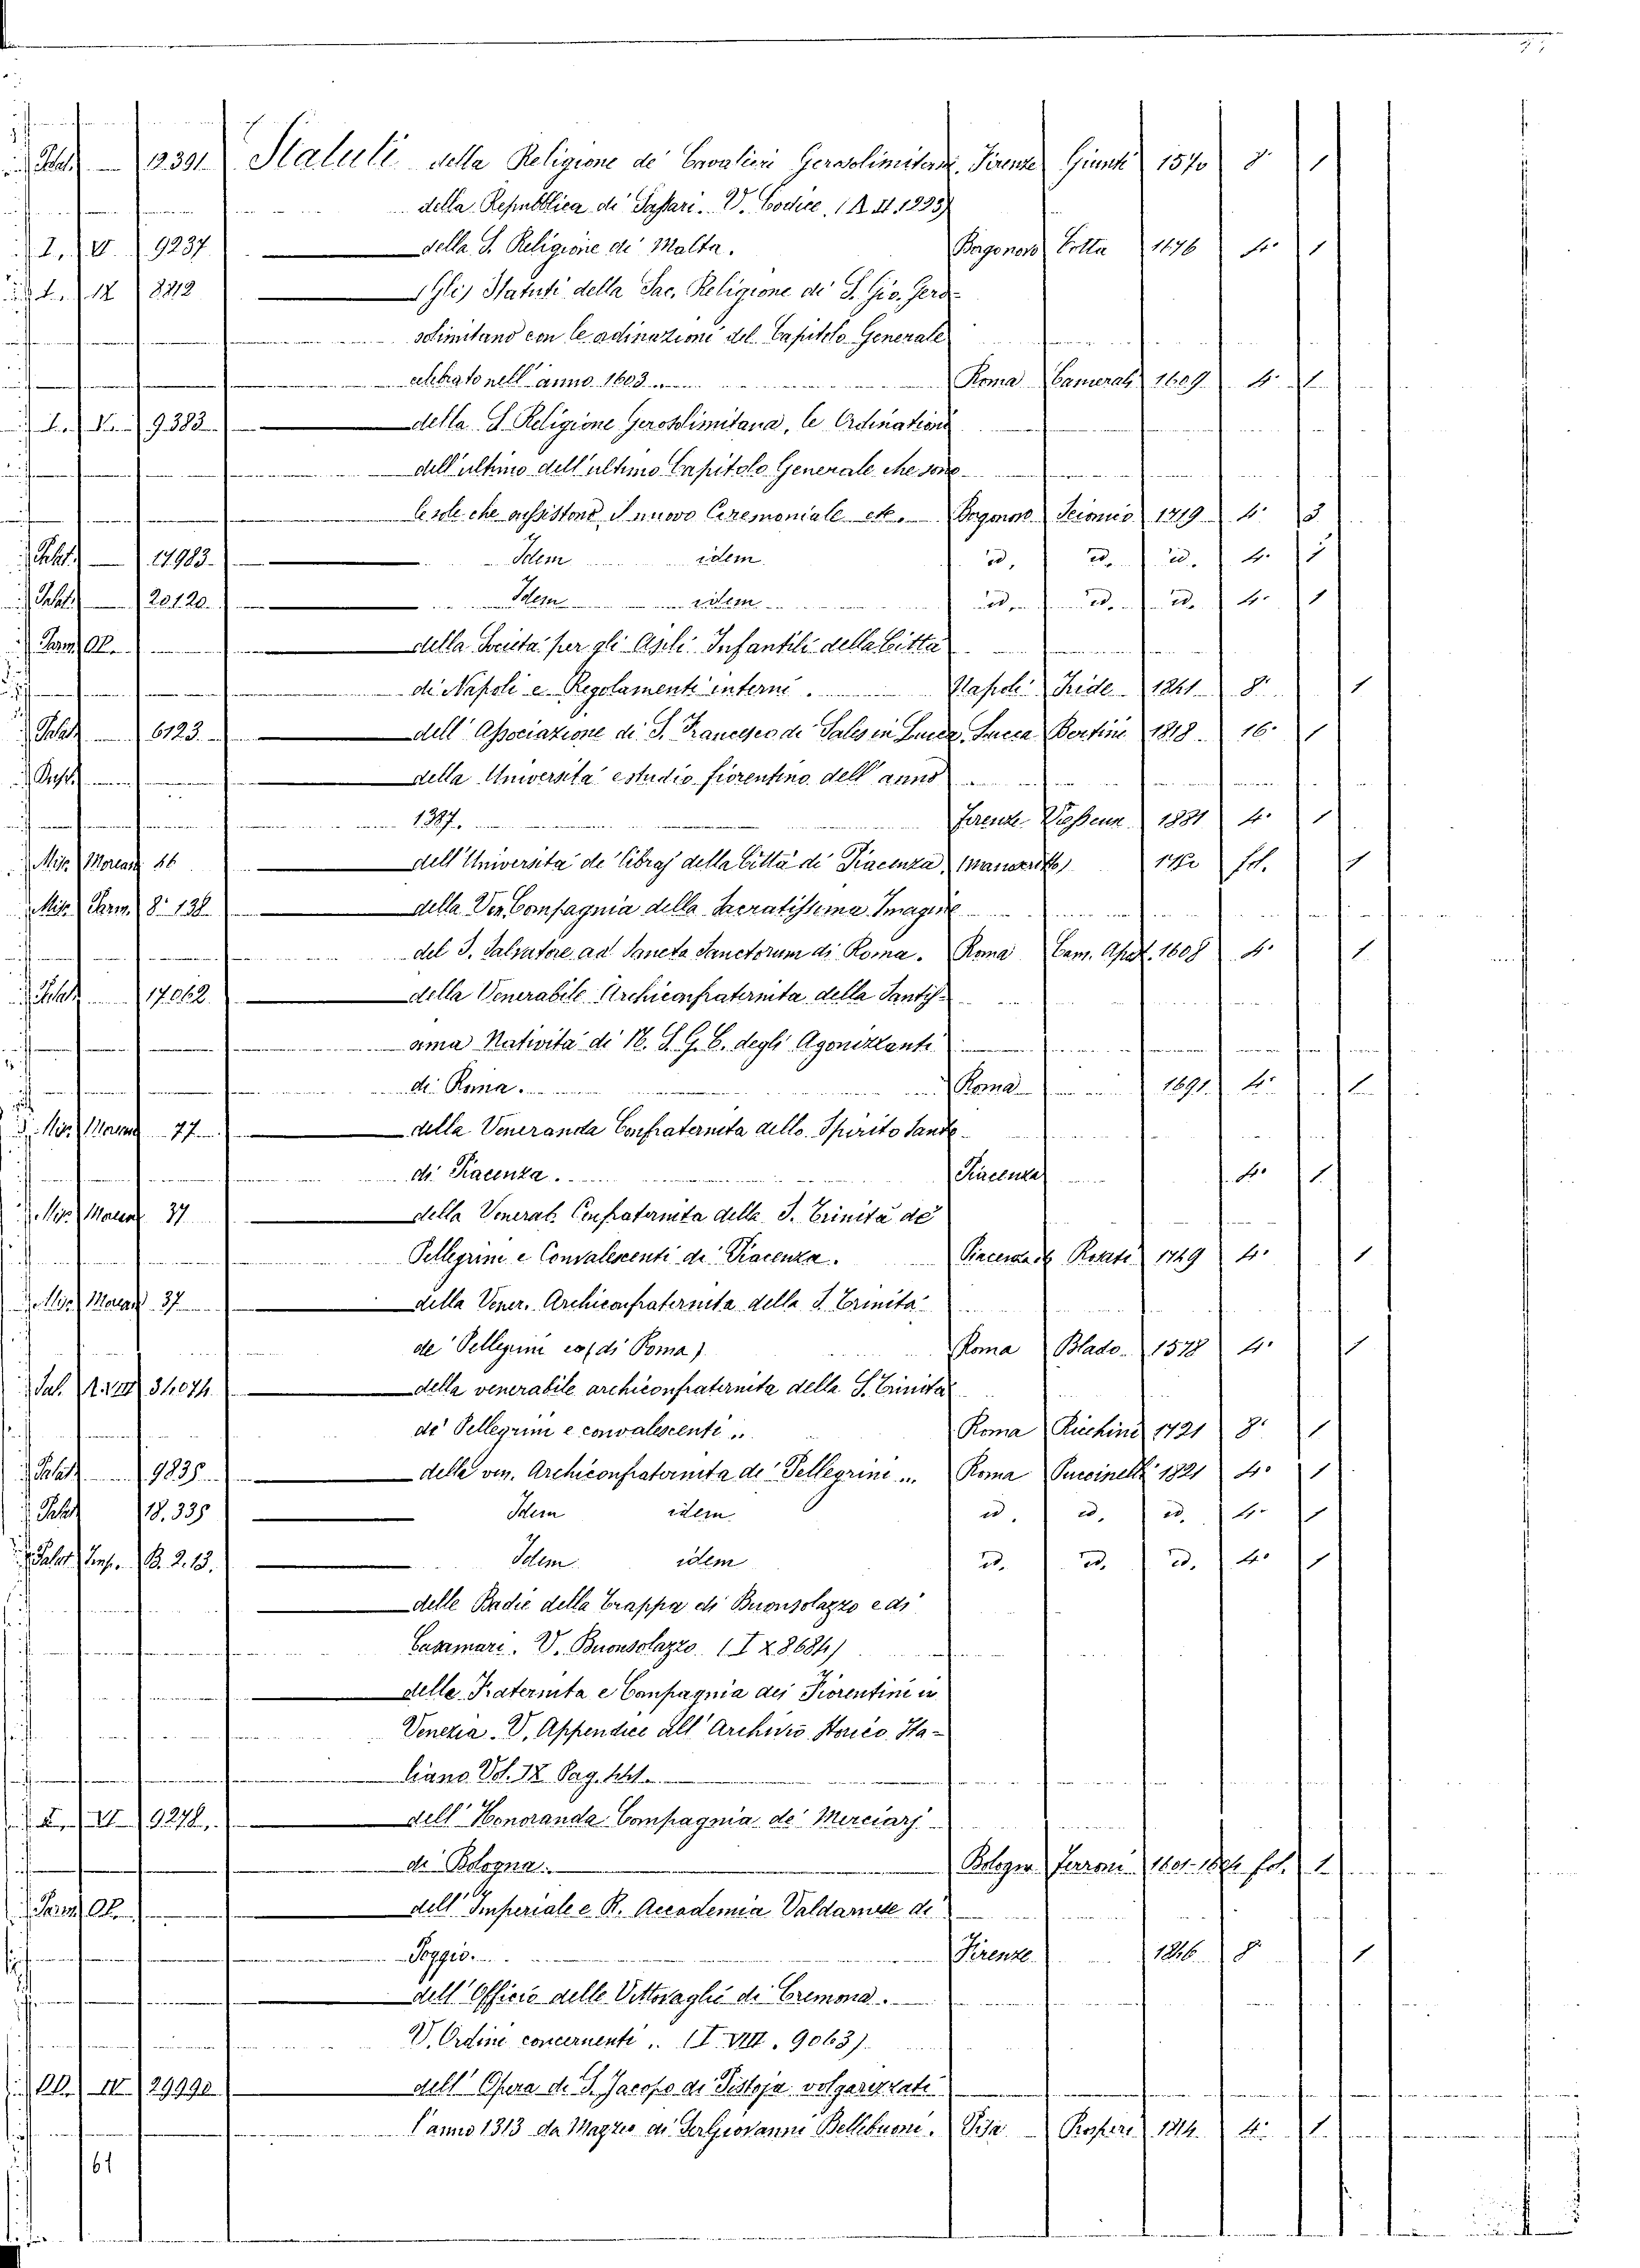 Palat. — 12391 Statuti della Religione de' Cavalieri Gerosolimitani. Firenze Giunti 1570 8° 1
della Repubblica di Sassari. V. Codice.
I. VI. 9237 della S. Religione di Malta. Borgonovo Cotta 1676 4° 1
I. IX 8212 (Gli) Statuti della Sac. Religione di S. Gio. Gero-
solimitano con le ordinationi del Capitolo Generale
celebrato nell'anno 1603 Roma Camerale 1609 4° 1
I. V. 9383 della S. Religione Gerosolimitana, le Ordinationi
dell'ultimo dell'ultimo Capitolo Generale che sono
le sole che sussistono, il nuovo Ceremoniale etc. Borgonovo Scionico 1719 4° 3
Palat. — 17983 Idem idem id. id. id. 4° 1
Palat. 20120 Idem idem id. id. id. 4° 1
Parm. Op. della Società per gli Asili Infantili della Città
di Napoli e Regolamenti interni. Napoli Fride 1841 8° 1
Palat. 6123 dell' Associazione di S. Francesco di Sales in Lucca. Lucca Bertini 1818 16° 1
della Università e studio fiorentino dell' anno
1387. Firenze Viesseux 1881 4° 1
Misc. Moreau 46 dell'Università de' Libraj della Città di Piacenza, (manoscritto) fol. 1
Misc. Parm. 8° 138 della Ven. Compagnia della Sacratissima Imagine
del S. Salvatore ad Sancta Sanctorum di Roma. Roma Cam. Apost. 1608 4° 1
Palat. 17062 della Venerabile Archiconfraternita della Santis-
sima Natività di N. S. G. C. degli Agonizzanti
di Roma. Roma 1691 4° 1
Misc. Moreau 77 della Veneranda Confraternita dello Spirito Santo
di Piacenza. Piacenza 4° 1
Misc. Moreau 37 della Venerab. Confraternita della S. Trinità de'
Pellegrini e Convalescenti di Piacenza. 1749 4° 1
Misc. Moreau 37 della Vener. Archiconfraternita della S. Trinità
de' Pellegrini ec. (di Roma) Roma Blado. 1578 4° 1
Sal. 34074 della venerabile archiconfraternita della S. Trinità
de' Pellegrini e convalescenti .. Roma Zuchini 1721 8° 1
Palat. 9835 della ven. Archiconfraternita de' Pellegrini ... Roma Puccinelli 1821 4° 1
Palat. 18.335 Idem idem id. id. id. 4° 1
Palat. Imp. B. 2. 13. Idem idem id. id. id. 4° 1
delle Badie della Trappa di Buonsolazzo e di
Casamari. V. Buonsolazzo (I X 8684)
della Fraternita e Compagnia dei Fiorentini in
Venezia. V. Appendice all' Archivio Storico Ita-
liano Vol. IX Pag. 441.
I. VI 9278. dell' Honoranda Compagnia de' Merciarj
di Bologna. Bologna Ferroni fol. 1
Parm. Op. dell' Imperiale e R. Accademia Valdarnese di
Poggio. Firenze 1846 8° 1
dell' Officio delle Vittovaglie di Cremona.
V. Ordini concernenti .. (I. VIII. 9063)
IV 29990 dell' Opera di S. Jacopo di Pistoja volgarizzati
l'anno 1313 da Mazzeo di Ser Giovanni Bellebuoni. Pisa Prosperi 1814. 4° 1
61